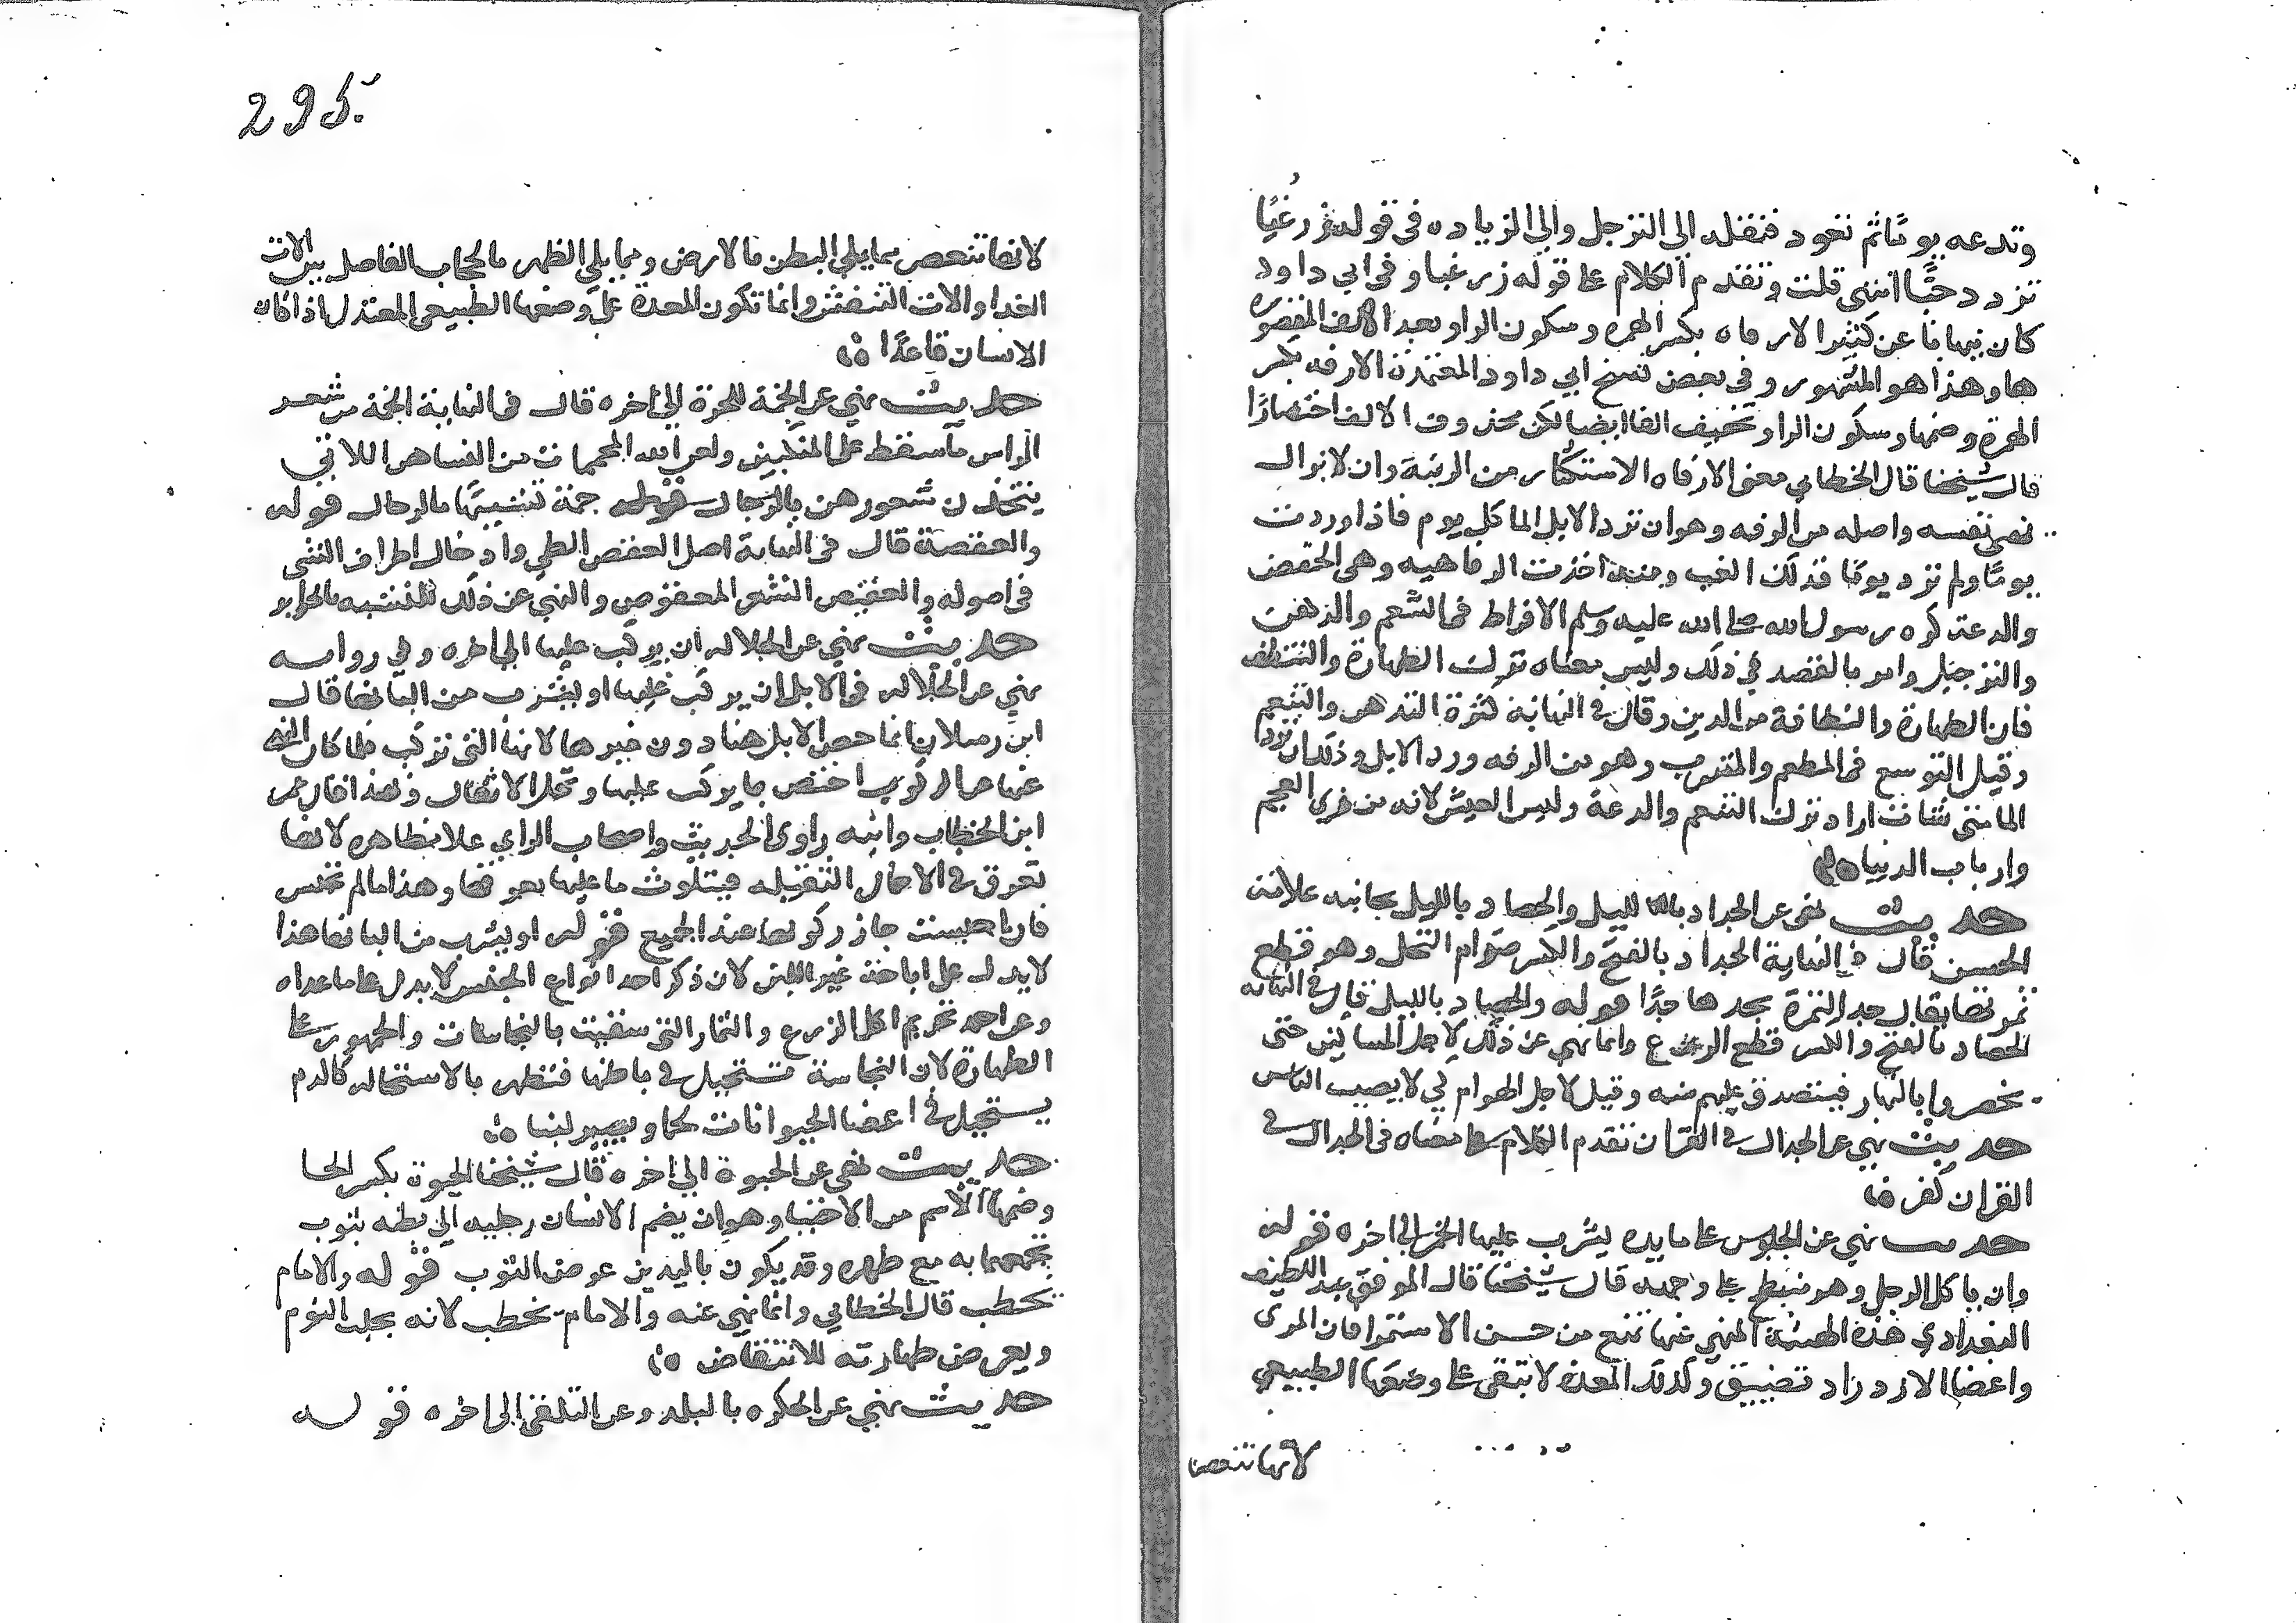 وتدعه يومًا ثم تعود فنقله الي الترجل والي الزياده في قوله زر غبًا
تزدد حبًّا انتهى قلت وتقدم الكلام على قوله زر غبا وفي ابي داود
كان ينهانا عن كثير الارفاه بكسر الهمزه وسكون الراء وبعد الالف المقصوره
ها وهذا هو المشهور وفي بعض نسخ ابي داود المعتمدة الارفه بكسر
الهمزة وضمها وسكون الراء وتخفيف الفا ايضا لكن محذوف الالف اختصارًا
قال شيخنا قال الخطابي معنى الارفاه الاستكثار من الزينة وان لا يزال
نفسه واصله من الرفه وهو ان ترد الابل الما كل يوم فاذا وردت
يومًا ولم ترد يومًا فذلك الغب ومنه اخذت الرفاهيه وهي الخفض
والدعة كره رسول الله صلى الله عليه وسلم الافراط في التنعم والتدهن
والترجيل وامر بالقصد في ذلك وليس معناه ترك الطهارة والتنظف
فان الطهارة والنظافة من الدين وقال في النهاية كثرة التدهن والتنعم
وقيل التوسع في المطعم والمشرب وهو من الرفه ورد الابل وذلك ان ترد
الما متى شات اراد ترك التنعم والدعة ولين العيش لانه من زي العجم
وارباب الدنيا
حديث نهى عن الجداد بالليل والحصاد بالليل بجانبه علامة
الحسن قال في النهاية الجداد بالفتح والكسر صرام النخل وهو قطع
ثمرتها يقال جد الثمرة يجدها جدًا قوله والحصاد بالليل قال في النهاية
الحصاد بالفتح والكسر قطع الزرع وانما نهي عن ذلك لاجل المساكين حتى
يحضروا بالنهار فيتصدق عليهم منه وقيل لاجل الهوام لي لا يصيب الناس
حديث نهي عن الجدال في القران تقدم الكلام على معناه في الجدال في
القران كفر
حديث نهي عن الجلوس على مايده يشرب عليها الخمر الي اخره قوله
وان ياكل الرجل وهو منبطح على وجهه قال شيخنا قال الموفق عبد اللطيف
البغدادي هذه الهيئة المنهي عنها تمنع من حسن الاستمرا فان المري
واعضا الازدراد تضيق وكذلك المعدة لا تبقى على وضعها الطبيعي
لانها تنعصر
295
لانها تنعصر مما يلي البطن بالارض ومما يلي الظهر بالحجاب الفاصل بين الات
الغدا والات التنفس وانما تكون المعدة على وضعها الطبيعي المعتدل اذا كان
الانسان قاعدًا
حديث نهي عن الجمة للحرة الي اخره قال في النهاية الجمة من شعر
الراس ما سقط على المنكبين ولعن الله المجممات من النسا هن اللاتي
يتخذن شعورهن بالرجال جمة تشبيهًا بالرجال قوله
والعقصة قال في النهاية اصل العقص الطي وادخال اطراف الشي
في اصوله والعقيص الشعر المعقوص والنهي عن ذلك للتشبه بالحراير
حديث نهي عن الجلاله ان يركب عليها الي اخره وفي رواية
نهي عن الجلاله في الابل ان يركب عليها او يشرب من البانها قال
ابن رسلان انما خص الابل هنا دون غيرها لانها التي تركب فلما كان النهي
عنها من الركوب اختص بما يركب عليها وتحمل الاثقال وبهذا قال عمر
ابن الخطاب وابنه راوي الحديث واصحاب الراي عملا بظاهره لانها
تعرق في الاحمال الثقيله فيتلوث ما عليها بعرقها وهذا ما لم تحبس
فاذا حبست جاز ركوبها عند الجميع قوله او يشرب من البانها هذا
لا يدل على اباحة غير اللبن لان ذكر احد انواع الجنس لا يدل على ما عداه
وعن احمد تحريم اكل الزرع والثمار التي سقيت بالنجاسات والجمهور على
الطهارة لان النجاسة تستحيل في باطنها فتطهر بالاستحاله كالدم
يستحيل في اعضا الحيوانات لحما ويصير لبنا
حديث نهى عن الحبوة الي اخره قال شيخنا الحبوة بكسر الحا
وضمها الاسم من الاحتبا وهو ان يضم الانسان رجليه الى بطنه بثوب
يجمعهما به مع ظهره وقد يكون باليدين عوض الثوب قوله والامام
يخطب قال الخطابي وانما نهي عنه والامام يخطب لانه يجلب النوم
ويعرض طهارته للانتقاض
حديث نهي عن الحكره بالبلد وعن التلقي الى اخره قوله